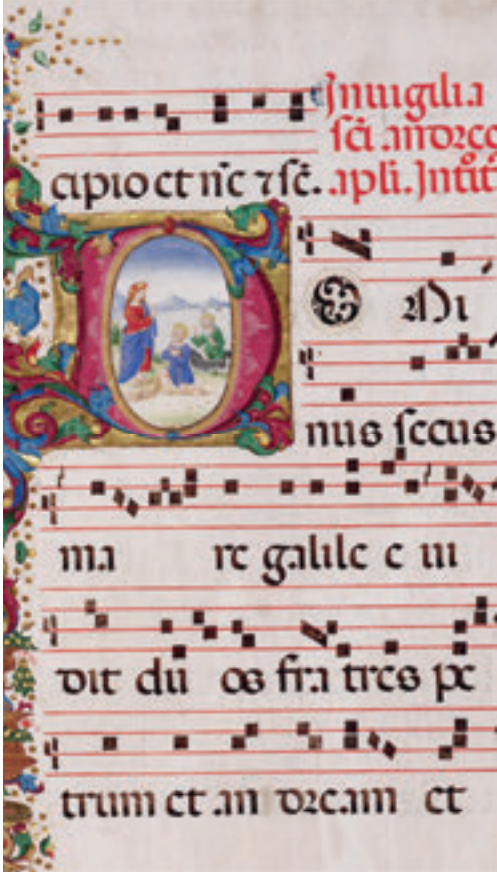 In uigilia
sc̄i andree
cipio et nc̄ ⁊ sē. apli. Intr̄oit
D O Mi
nus secus
ma re galile e ui
dit du os fra tres pe
trum et an dream et